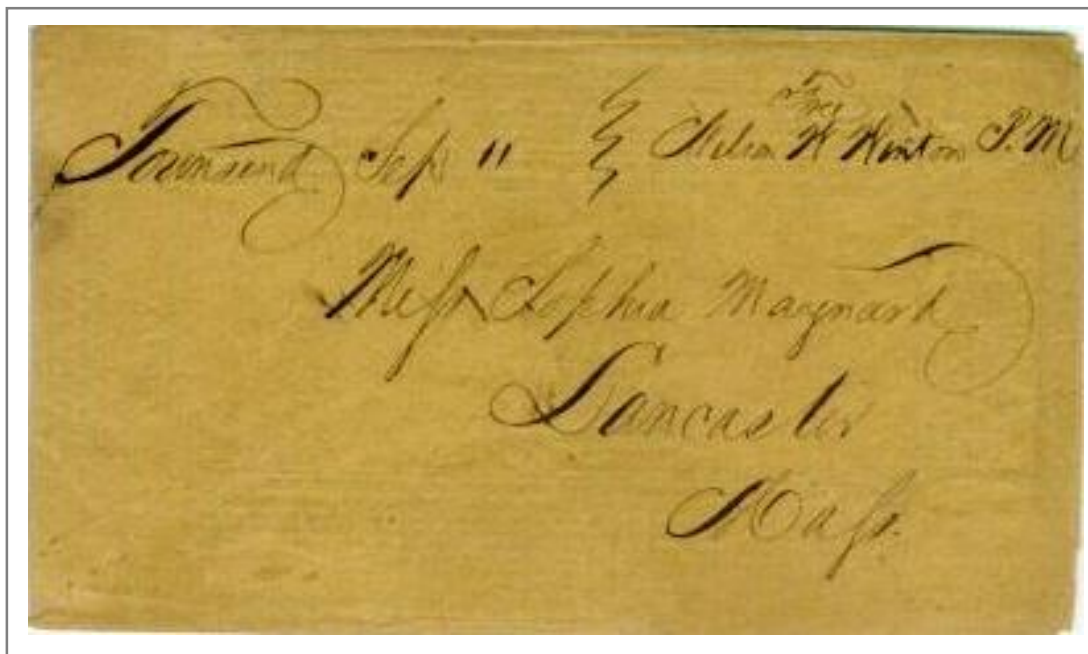 Townsend Sep 11 Free
W Winton P.M
Miss Sophia Maynard
Lancaster
Mass.